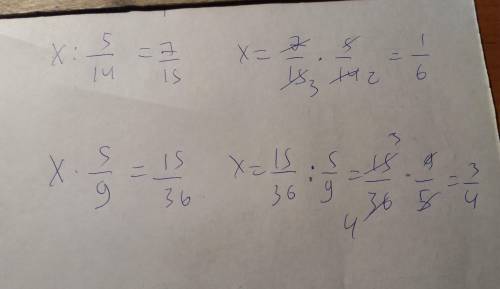 x : 5/14 = 7/15    x = 7/15 3 · 5/14 2 = 1/6
x · 5/9 = 15/36    x = 15/36 : 5/9 = 15 3/36 4 · 9/5 = 3/4